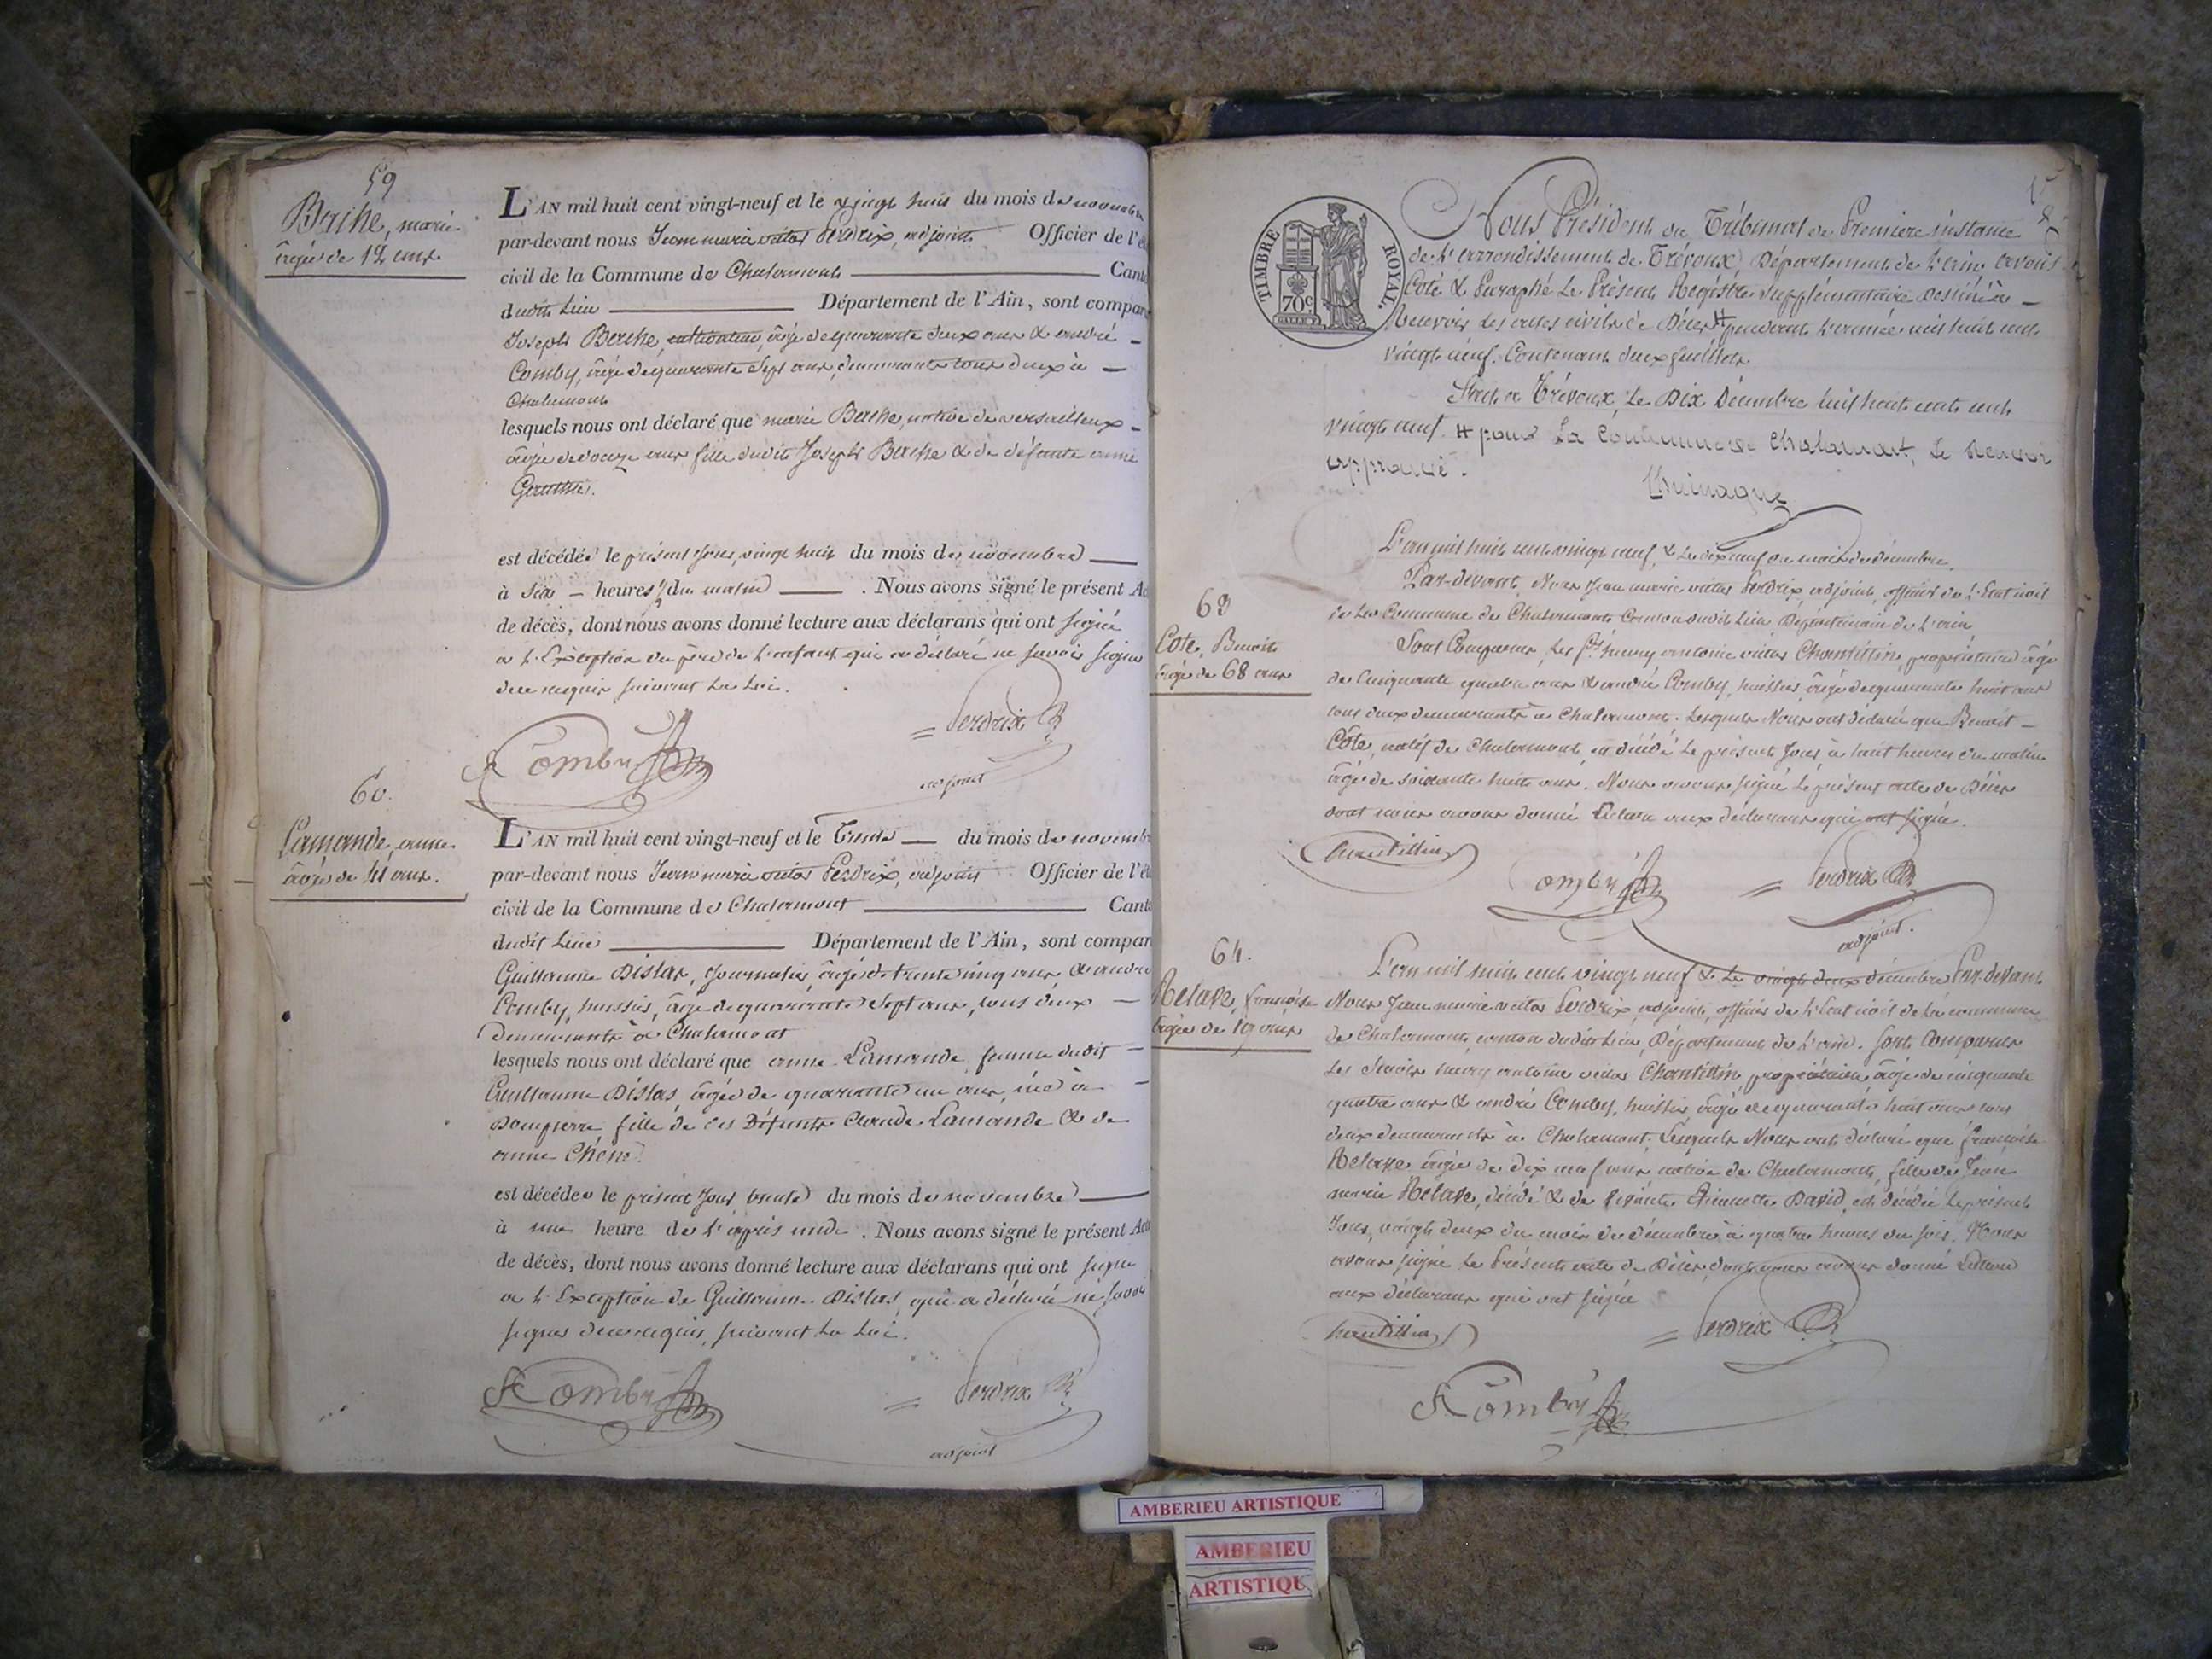 59
Berthe, marie
âgée de 12 ans.
L'AN mil huit cent vingt-neuf et le vingt huit du mois de novembre
par-devant nous Jean marie vitas Perdrix, adjoint Officier de l'ét
civil de la Commune de Chalamont Cant
dudit Lieu Département de l'Ain, sont compar
Joseph Berthe, cultivateur, âgé de quarante deux ans & andré
Comby, âgé de quarante sept ans, demeurants tous deux à
Chalamont
lesquels nous ont déclaré que marie Berthe, native de versailleux
âgée de douze ans fille dudit Joseph Berthe & de défunte anne
est décédée le présent jour, vingt huit du mois de novembre
à six heures 1/2 du matin . Nous avons signé le présent Ac
de décès, dont nous avons donné lecture aux déclarans qui ont signé
a l'Exception du père de l'enfant qui a déclaré ne savoir signer
de ce requis suivant la Loi.
Comby
Perdrix
adjoint
60.
Lamande, anne
âgée de 41 ans.
L'AN mil huit cent vingt-neuf et le Trente du mois de novemb
par-devant nous Jean marie vitas Perdrix, adjoint Officier de l'ét
civil de la Commune de Chalamont Cant
dudit Lieu Département de l'Ain, sont compar
Guillaume Dislas, Journalier, âgé de trente cinq ans & andré
Comby, huissier, âgé de quarante sept ans, tous deux
demeurants à Chalamont
lesquels nous ont déclaré que anne Lamande, femme dudit
Guillaume Dislas, âgée de quarante un ans, née à
Dompierre fille de des Défunts Claude Lamande & de
anne Chêne.
est décédée le présent Jour trente du mois de novembre
à une heure de l'après midi . Nous avons signé le présent Ac
de décès, dont nous avons donné lecture aux déclarans qui ont signé
a l'Exception de Guillaume Dislas, qui a déclaré ne savoir
signer de ce requis, suivant la Loi.
Comby
Perdrix
adjoint
TIMBRE ROYAL.
70c
Nous Président du Tribunal de Première instance
de l'arrondissement de Trévoux, Département de l'ain, avons
Coté & Paraphé Le Présent Registre supplémentaire Destiné à
Recevoir les actes civils de Décès # pendant l'année mil huit cent
vingt neuf. Contenant deux feuillets
Fait a Trévoux, le Dix Décembre mil huit cent
vingt neuf. # pour La Commune de Chalamont, le Renvoi
approuvé.
63
Cote, Benoit
âgé de 68 ans
L'an mil huit cent vingt neuf, & le dix neuf du mois de décembre,
Par-devant, Nous Jean marie vitas Perdrix, adjoint, officier de l'Etat civil
de La Commune de Chalamont Canton dudit Lieu Département de l'ain
Sont Comparus, Les Srs henry antoine vitas Chantillin, propriétaire âgé
de cinquante quatre ans & andré Comby, huissier, âgé de quarante huit ans
tous deux demeurants à Chalamont. Lesquels Nous ont déclaré que Benoit
Côte, natif de Chalamont, est décédé le présent Jour, à huit heures du matin
âgé de soixante huit ans. Nous avons signé le présent acte de Décès
dont nous avons donné Lecture aux déclarans qui ont signé.
Chantillin
Comby
Perdrix
adjoint.
64.
Relave, françoise
âgée de 19 ans
L'an mil huit cent vingt neuf & Le vingt deux décembre Par devant
Nous Jean marie vitas Perdrix, adjoint, officier de l'Etat civil de la commune
de Chalamont, canton dudit Lieu, Département de l'ain. Sont Comparus
Les Sieurs henry antoine vitas Chantillin, propriétaire âgé de cinquante
quatre ans & andré Comby, huissier, âgé de quarante huit ans tous
deux demeurants à Chalamont. Lesquels Nous ont déclaré que françoise
Relave âgée de Dix neuf ans native de Chalamont, fille de Jean
marie Relave, décédé & de vivante Etiennette David, est décédée Le présent
Jour, vingt deux du mois de décembre à quatre heures du soir. Nous
avons signé Le Présent acte de Décès, dont nous avons donné Lecture
aux déclarans qui ont signé
Chantillin
Perdrix
Comby
AMBERIEU ARTISTIQUE
AMBERIEU
ARTISTIQU